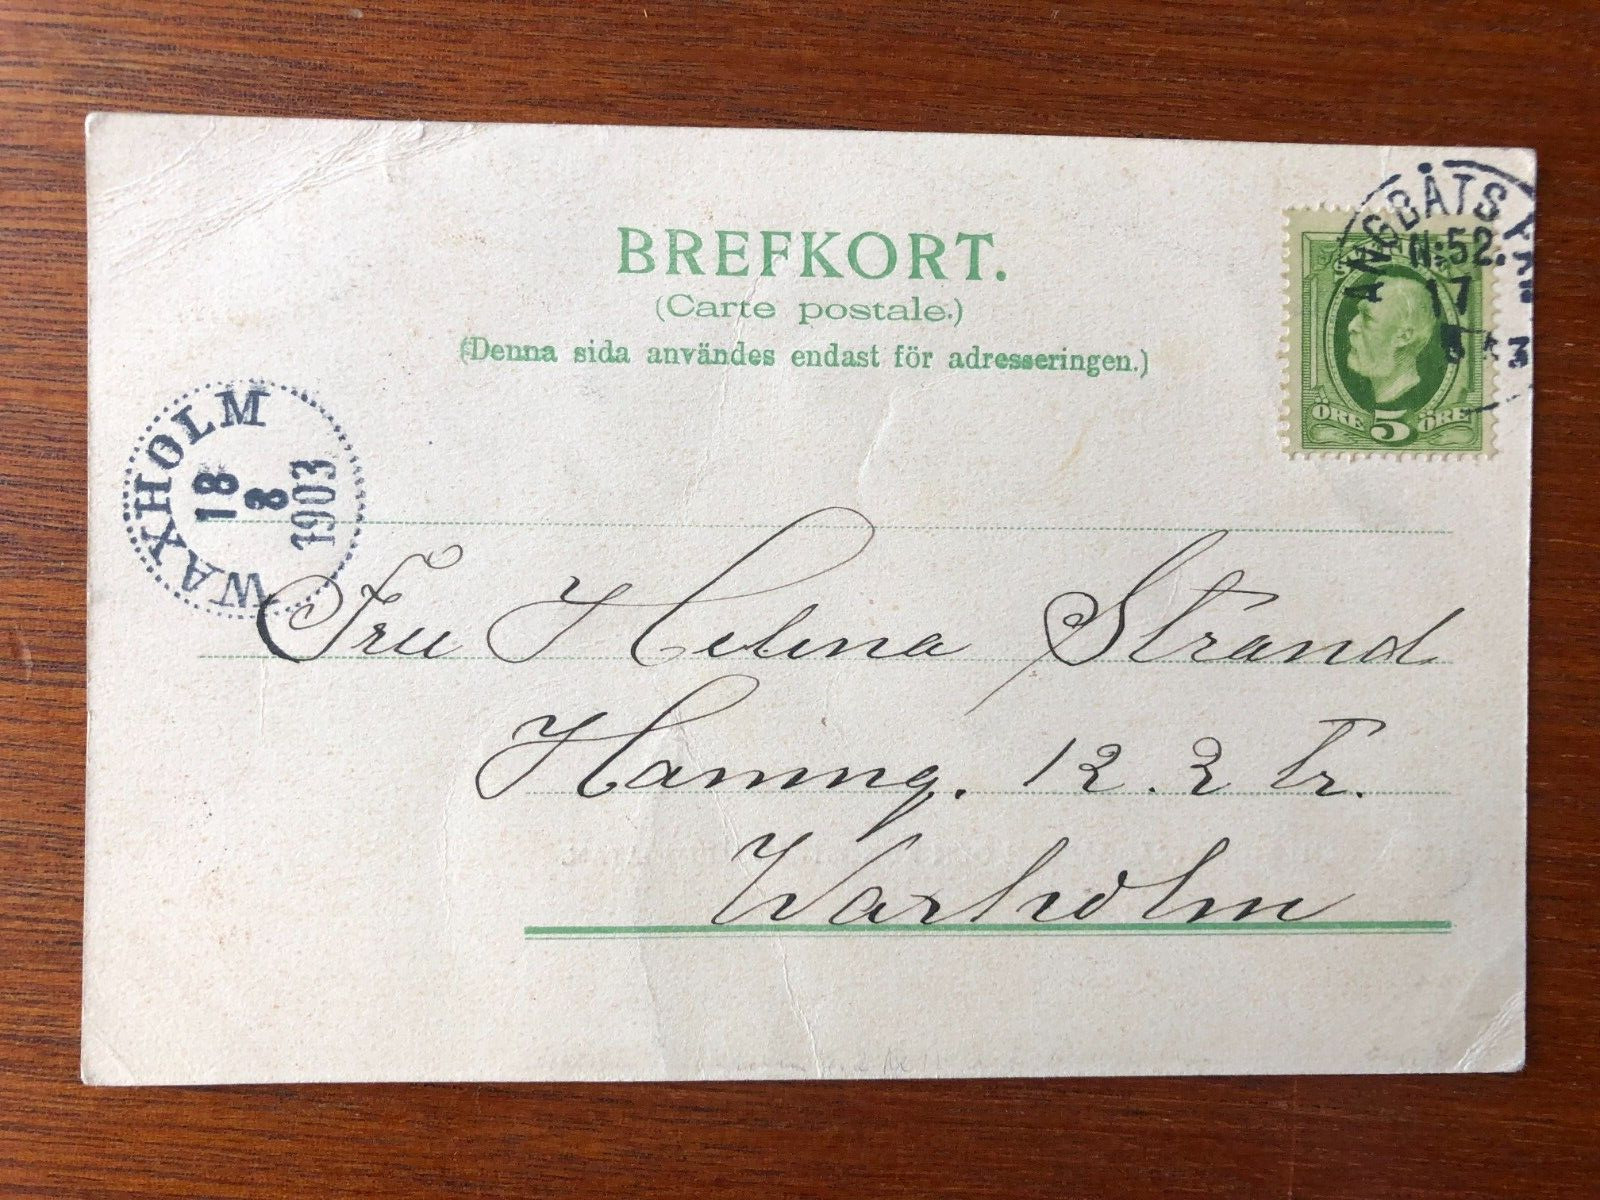 BREFKORT.
(Carte postale.)
(Denna sida användes endast för adresseringen.)
ÅNGBÅTS
N:52.
17
ÖRE 5 ÖRE
WAXHOLM
18
8
1903
Fru Helena Strand
Hamng. 12. 2 Tr.
Waxholm